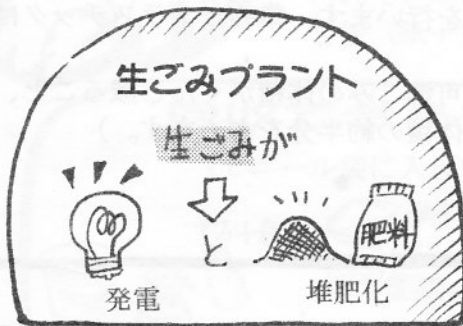 生ごみプラント
生ごみが
と
肥料
発電
堆肥化